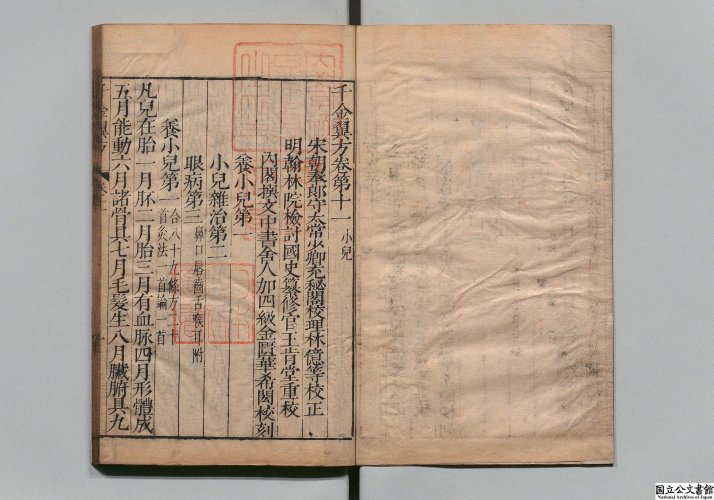 千金翼方卷第十一 小兒
宋朝奉郎守太常少卿充秘閣校理林億等校正
明翰林院檢討國史纂修官王肯堂重校
內閣撰文中書舍人加四級金匱華希閎校刻
養小兒第一
小兒雜治第二
眼病第三 鼻口唇齒舌喉耳附
養小兒第一 合八十九條方一十
首灸法一首論一首
凡兒在胎一月胚二月胎三月有血脉四月形體成
五月能動六月諸骨具七月毛髮生八月臟腑具九
千金翼方 卷十一 一
国立公文書館
National Archives of Japan